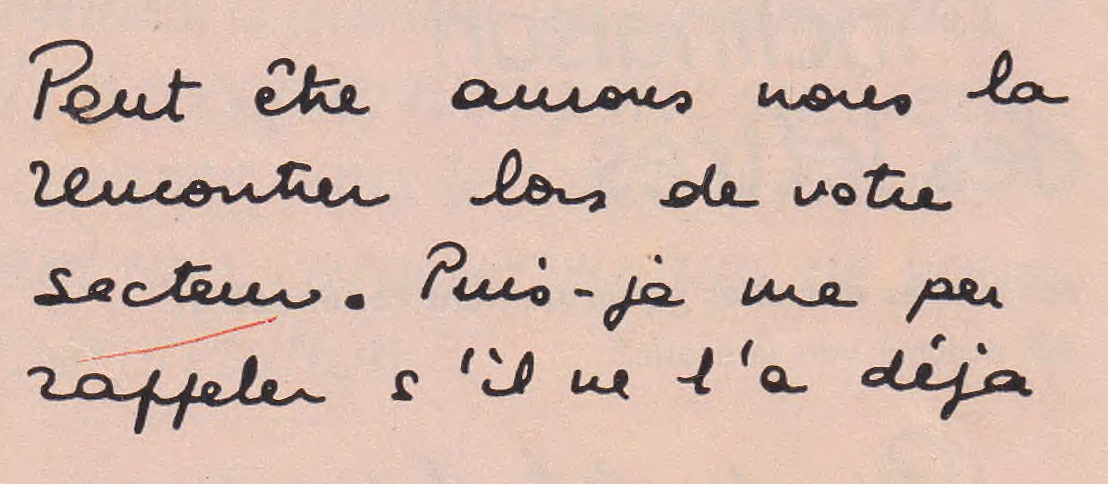 Peut être aurons nous la
rencontrer lors de votre
secteur. Puis-je me per
rappeler s'il ne l'a déja